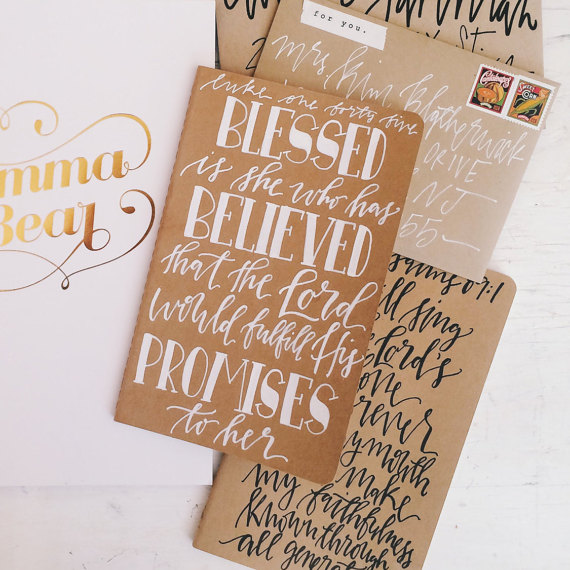 mma
Bear
for you.
mrs Kim
DRIVE
NJ
55
luke one forty five
BLESSED
is she who has
BELIEVED
that the Lord
would fulfill His
PROMISES
to her
89:1
ll sing
Lord's
one
rever
ymouth
make
my faithfulness
known through
all generat